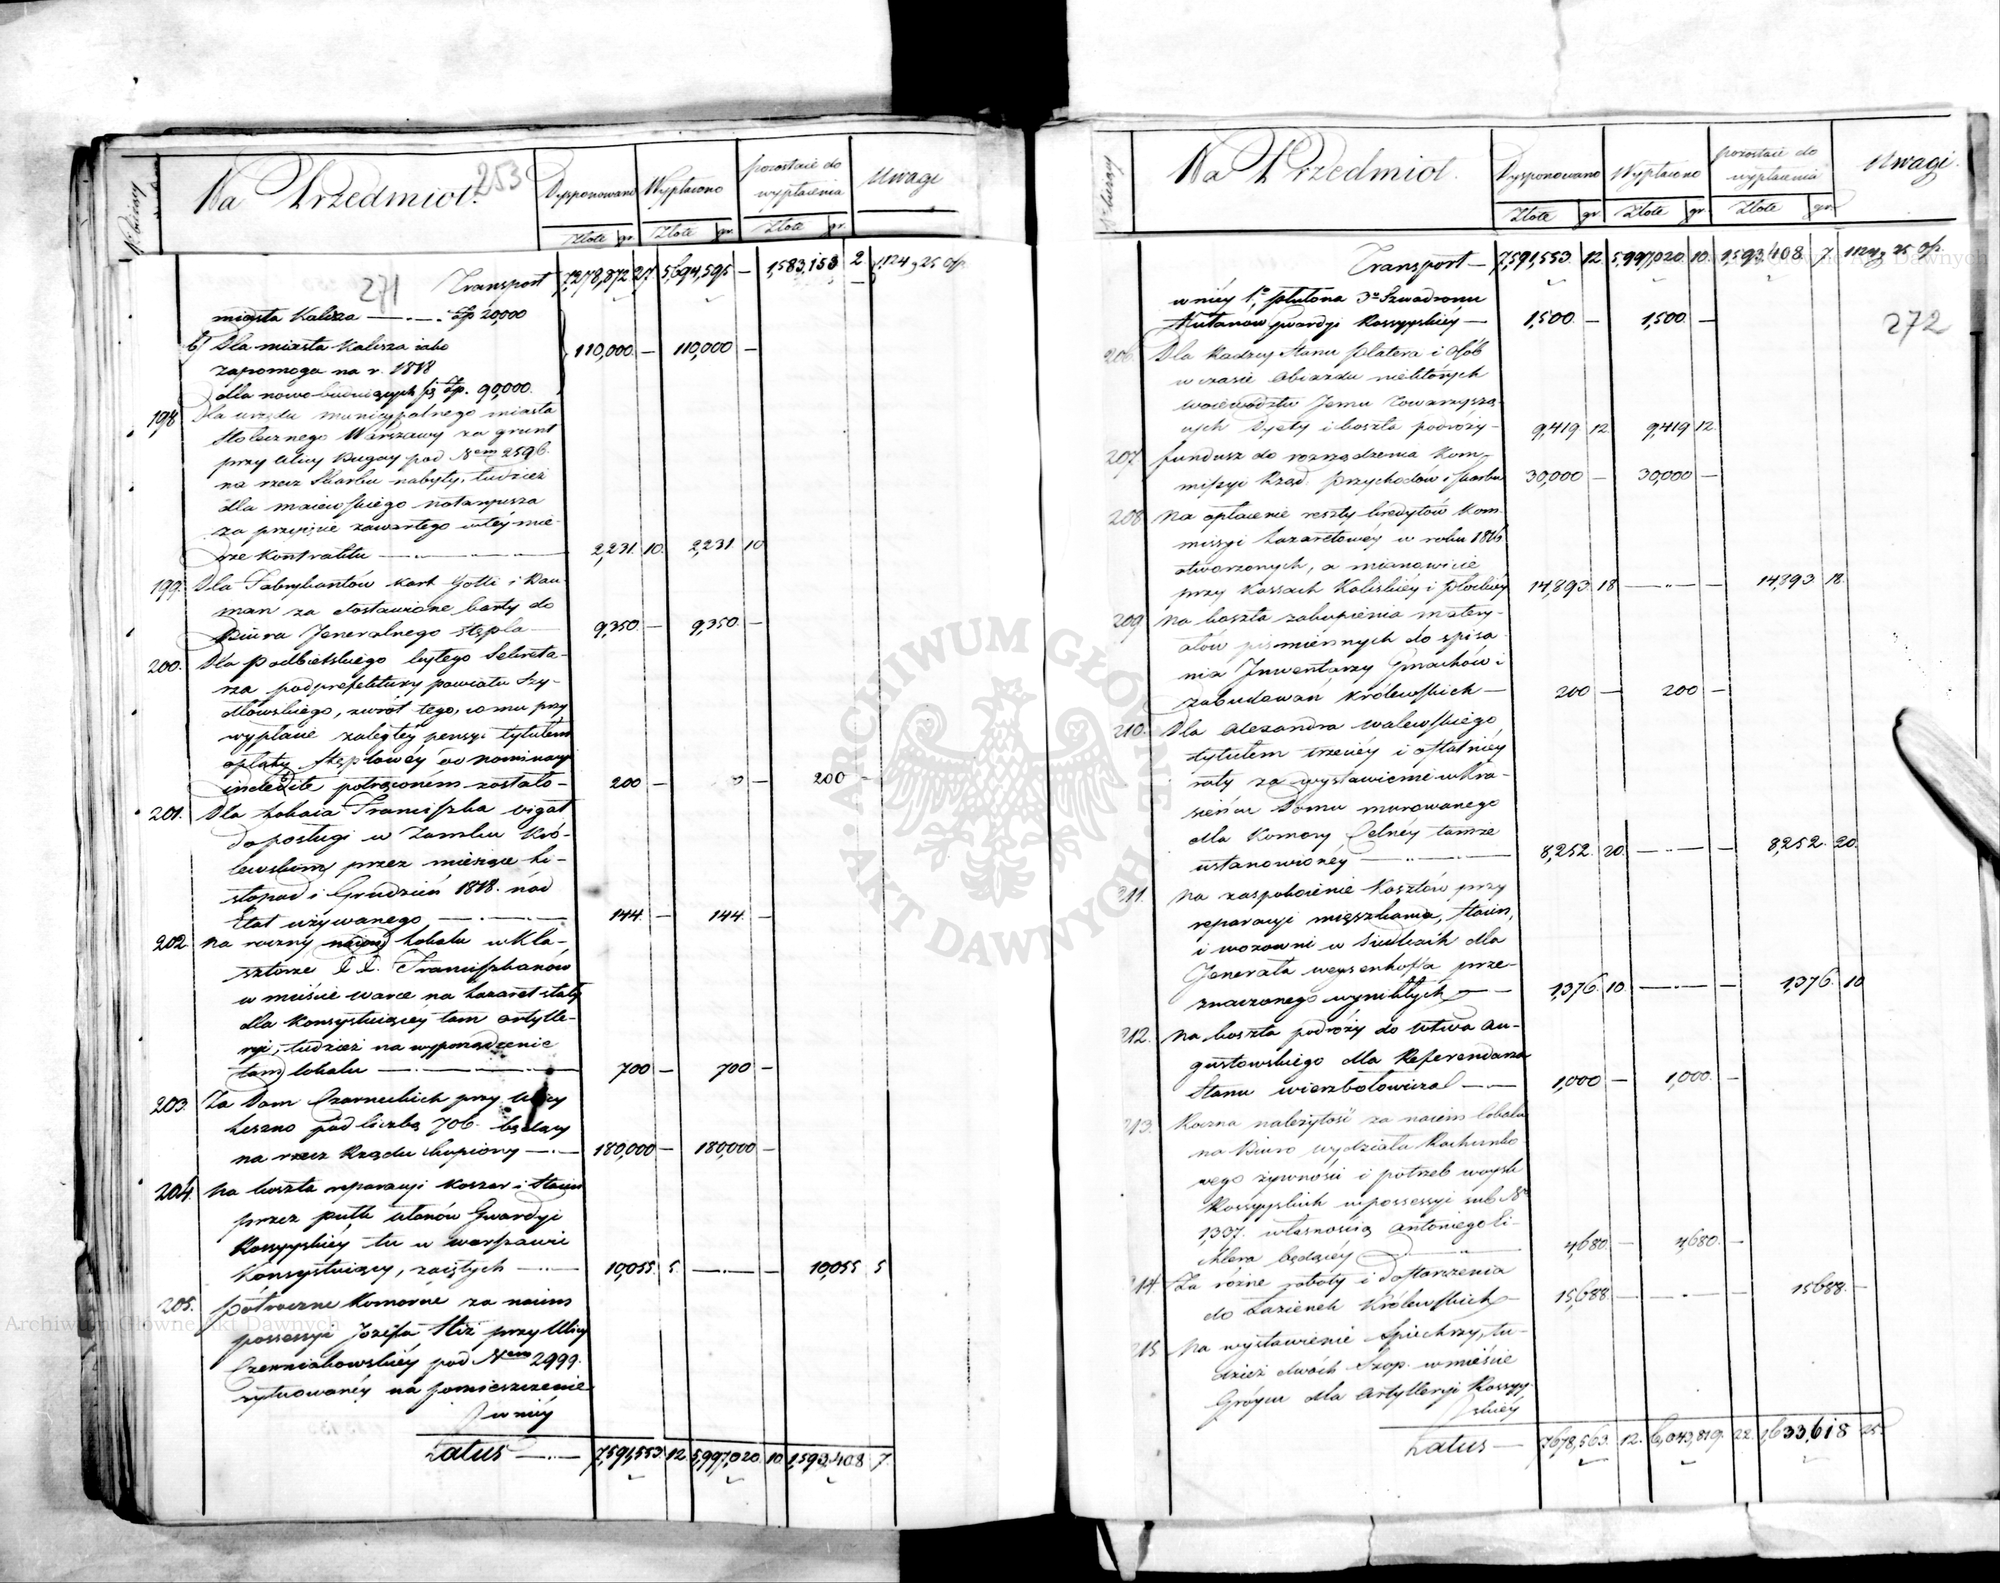 Nr bieżący
Na Przedmiot.
253
Dysponowano
Wypłacono
pozostaie do
wypłacenia
Uwagi
Złote gr.
Złote gr.
Złote gr.
271
Transport 7,278,872 27 5,694,595 — 1,583,153 2 1,124, 25 Op.
miasta Kalisza — . — . Zp 20,000
b) Dla miasta Kalisza iako 110,000 — 110,000 —
zapomoga na r. 1818
dla nowo buduiących się Zp. 90,000.
198 Dla urzędu municypalnego miasta
Stołecznego Warszawy za grunt
przy ulicy Bugay pod Nem 2596.
na rzecz Skarbu nabyty, tudzież
dla Maiewskiego notaryusza
za przyięcie zawartego w tey mie-
rze kontraktu — 2,231. 10. 2,231. 10
199. Dla Fabrykantów kart Gotti i Bau-
man za dostawione karty do
Biura Jeneralnego Stępla — 9,350. — 9,350. —
200. Dla Podbielskiego byłego Sekreta-
rza podprefektury powiatu Szy-
dłowskiego, zwrot tego, co mu przy
wypłacie zaległey pensyi tytułem
opłaty stęplowéy od nominacyi
indebite potrąconém zostało — 200 — 0 — 200 —
201. Dla Lokaia Franciszka Vigat
do posługi w Zamku Kró-
lewskim przez miesiące Li-
stopad i Grudzień 1818. nad
Etat używanego — 144. — 144. —
202. Na roczny naiem lokalu w Kla-
sztorze XX. Franciszkanów
w mieście Warce na Lazaret stały
dla konsystuiącey tam artylle-
ryi, tudzież na wyporządzenie
tam lokalu — 700 — 700 —
203. Za Dom Czarneckich przy Ulicy
Leszno pod liczbą 706. będący
na rzecz Rządu kupiony — 180,000 — 180,000 —
204. Na koszta reparacyi Koszar i Stacin
przez pułk Ułanów Gwardyi
Rossyyskiéy tu w Warszawie
konsystuiący, zaiętych — 10,055. 5. — 10,055 5
205. Półroczne Komorne za naiem
possessyi Jozefa Stiz przy Ulicy
Czerniakowskiéy pod Nem 2999.
sytuowanéy na pomieszczenie
w niéy
Latus — 7,591,553. 12. 5,997,020. 10 1,593,408 7.
Nr bieżący
Na Przedmiot.
Dysponowano
Wypłacono
pozostaie do
wypłacenia
Uwagi.
Złote gr.
Złote gr.
Złote gr.
Transport — 7,591,553 12 5,997,020. 10. 1,593,408 7 1124, 25 Op.
272
w niéy 1o plutona 3o Szwadronu
Ułanów gwardyi Rossyyskiéy — 1,500. — 1,500. —
206. Dla Radzcy Stanu Platera i osób
w czasie obiazdu niektórych
woiewództw Jemu towarzyszą-
cych Dyety i koszta podróży — 9,419 12. 9,419 12.
207. Fundusz do rozrządzenia Kom-
missyi Rząd. Przychodów i Skarbu 30,000 — 30,000 —
208. Na opłacenie reszty kredytów Kom-
missyi Lazaretowéy w roku 1816
otworzonych, a mianowicie
przy Kassach Kaliskiéy i Płockiéy 14,893. 18 — 14,893 18.
209 Na koszta zakupienia matery-
ałów piśmiennych do spisa-
nia Inwentarzy Gmachów i
zabudowań Królewskich — 200 — 200 —
210. Dla Alexandra Walewskiego
tytułem trzeciéy i ostatniéy
raty za wystawienie w Kra-
sieńcu Domu murowanego
dla Komory Celnéy tamże
ustanowionéy — 8,252. 20. — 8,252. 20.
211. Na zaspokoienie Kosztów przy
reparacyi mięszkania, Stacin,
i wozowni w Siedlcach dla
Jenerała Weysenhoffa prze-
znaczonego wynikłych — 1,376. 10. — 1,376. 10
212. Na koszta podróży do Wtwa Au-
gustowskiego dla Referendarza
Stanu Wierzbołowicza — 1,000 — 1,000. —
213. Roczna należytość za naiem lokalu
na Biuro wydziału Rachunko-
wego żywności i potrzeb woysk
Rossyyskich w possessyi sub No
1,337. własnością Antoniego Ei-
chlera będącéy — 4,680. — 4,680. —
214. Za różne roboty i dostarczenia
do Łazienek Królewskich — 15,688. — 15,688. —
215 Na wystawienie Spichrzy, tu-
dzież dwóch Szop. w mieście
Gróycu dla Artylleryi Rossyy-
skiéy
Latus — 7,678,563. 12. 6,043,819. 22. 1,633,618 25.
ARCHIWUM GŁÓWNE
AKT DAWNYCH
Archiwum Główne Akt Dawnych
Archiwum Główne Akt Dawnych